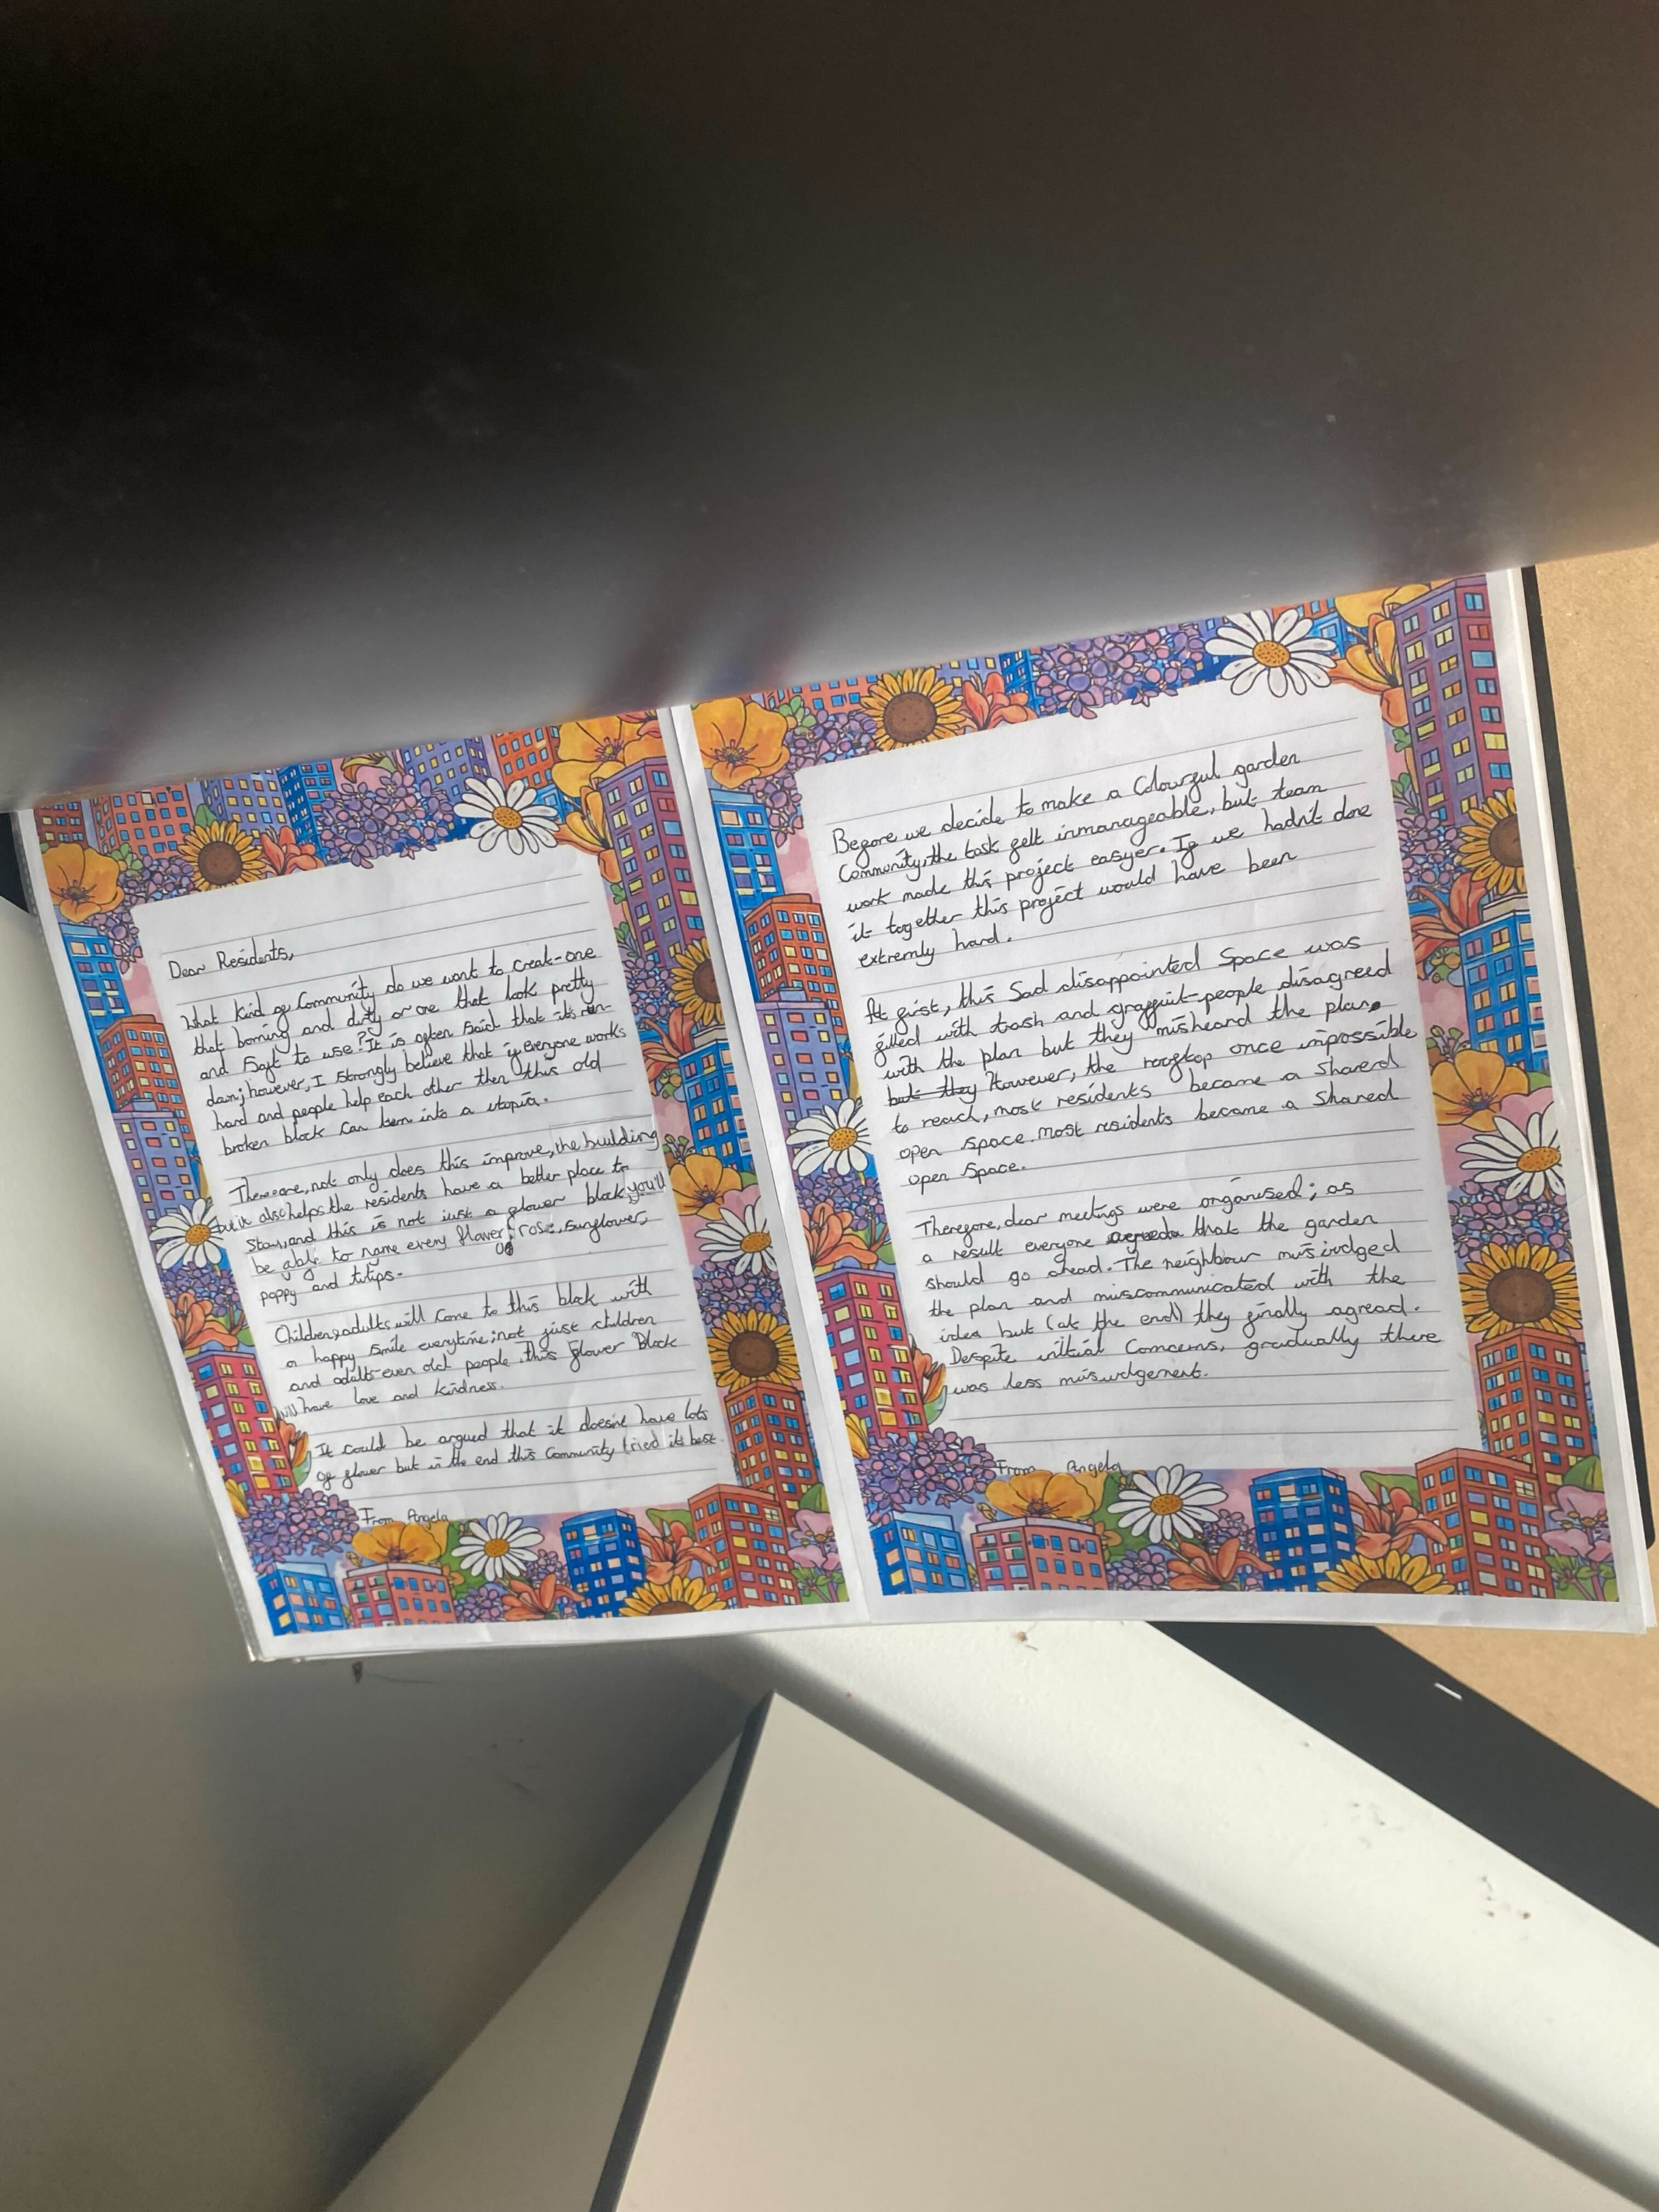 Dear Residents,
What kind of Community do we want to creat-one
that borning and dirty or one that look pretty
and Saft to use? It is often said that its run-
dawn; however, I strongly believe that if everyone works
hard and people help each other then this old
broken block can turn into a utopia.
Thereore, not only does this improve, the building
but it also helps the residents have a better place to
stay, and this is not just a flower block, you'll
be able to name every flower: rose, sunflower,
poppy and tulips.
Children, adults will come to this block with
a happy smile everytime; not just children
and adults-even old people. this flower block
will have love and kindness.
It could be argued that it doesint have lots
of flower but in the end this community tried its best.
From Angela
Before we decide to make a Colourful garden
Community, the task felt inmanageable, but team
work made this project easyer. If we hadn't done
it together this project would have been
extremly hard.
At first, this Sad disappointed Space was
filled with trash and graffuit-people disagreed
with the plan but they misheard the plan.
but they However, the rooftop once impossible
to reach, most residents became a Shared
open space. Most residents became a Shared
open Space.
Therefore, dear meetings were organised; as
a result everyone that the garden
should go ahead. The neighbour misjudged
the plan and miscommunicated with the
idea but (at the end) they finally agread.
Despite initial Concerns, gradually there
was less misjudgement.
From Angela